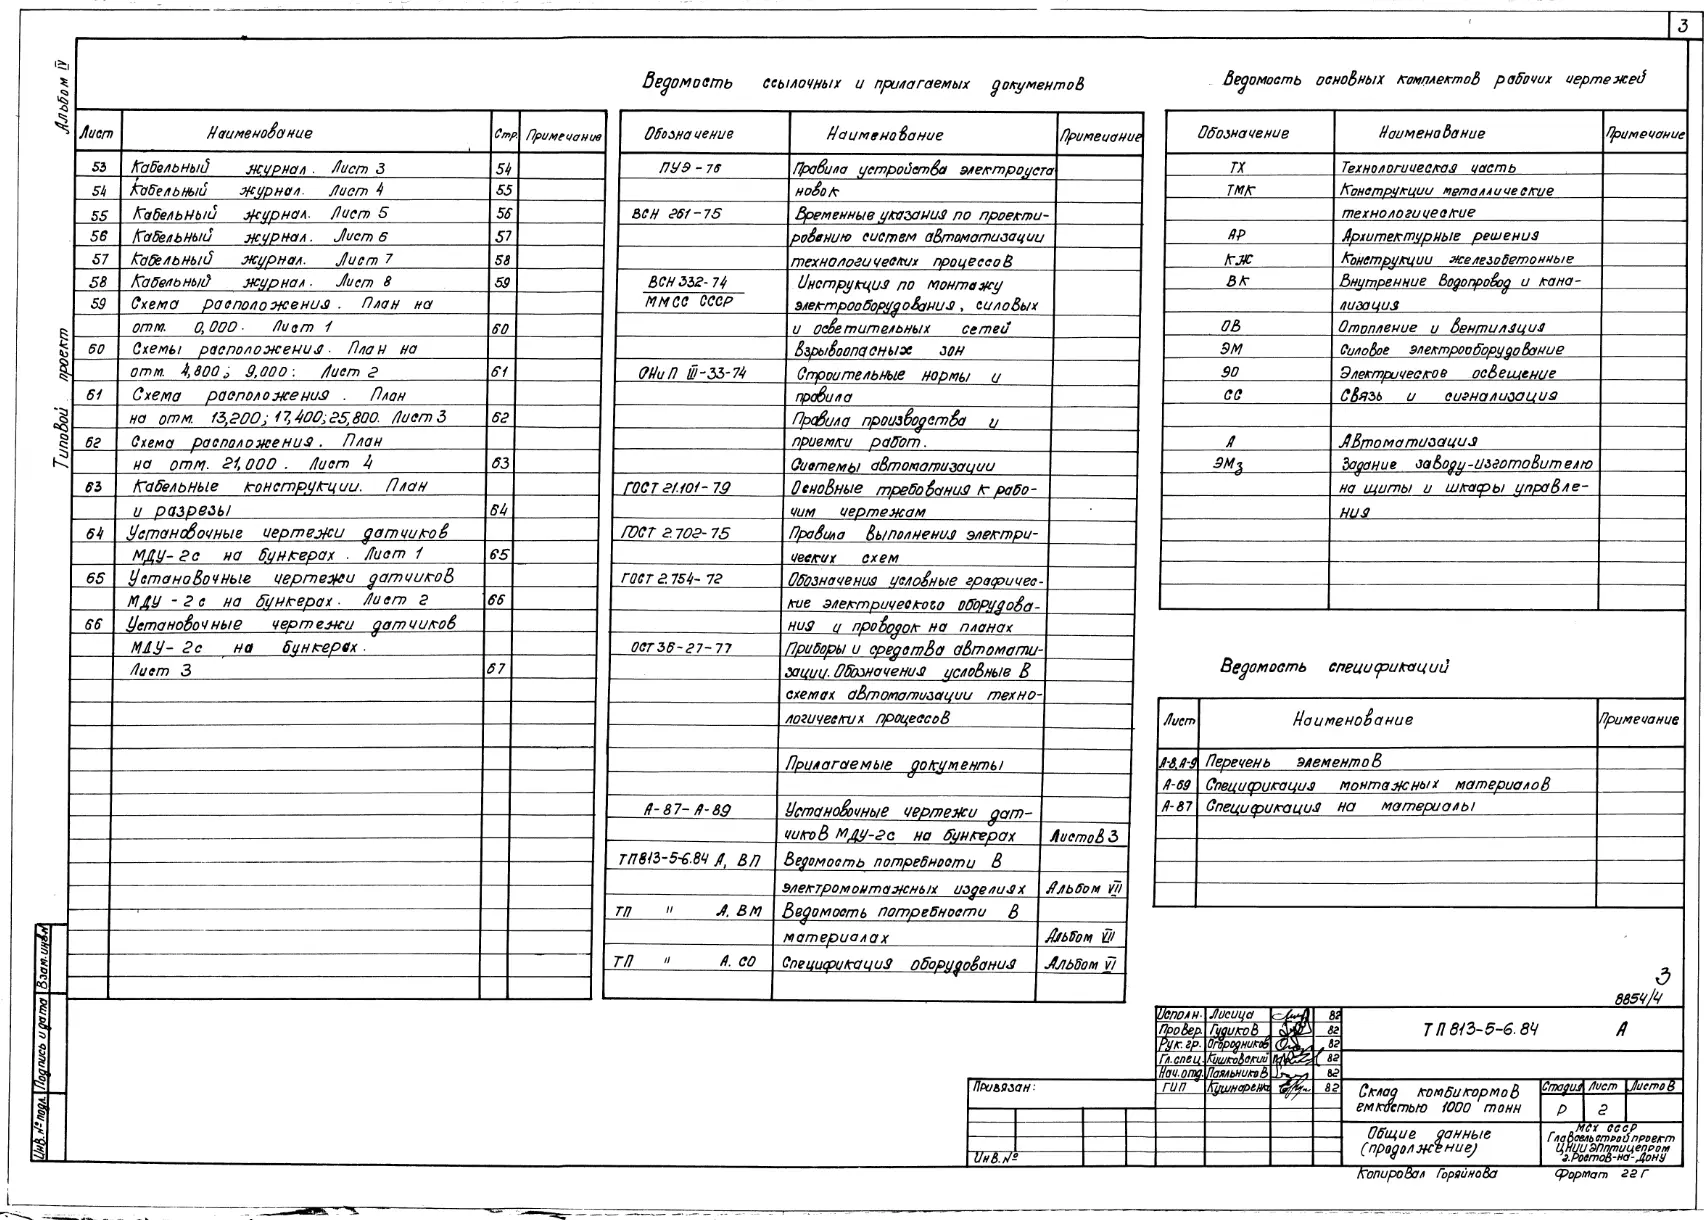 3
Альбом IV
Типовой проект
Лист Наименование Стр. Примечание
53 Кабельный журнал. Лист 3 54
54 Кабельный журнал. Лист 4 55
55 Кабельный журнал. Лист 5 56
56 Кабельный журнал. Лист 6 57
57 Кабельный журнал. Лист 7 58
58 Кабельный журнал. Лист 8 59
59 Схема расположения. План на
отм. 0,000. Лист 1 60
60 Схемы расположения. План на
отм. 4,800; 9,000: Лист 2 61
61 Схема расположения. План
на отм. 13,200; 17,400; 25,800. Лист 3 62
62 Схема расположения. План
на отм. 21,000. Лист 4 63
63 Кабельные конструкции. План
и разрезы 64
64 Установочные чертежи датчиков
МДУ-2с на бункерах. Лист 1 65
65 Установочные чертежи датчиков
МДУ-2с на бункерах. Лист 2 66
66 Установочные чертежи датчиков
МДУ-2с на бункерах.
Лист 3 67
Ведомость ссылочных и прилагаемых документов
Обозначение Наименование Примечание
ПУЭ-76 Правила устройства электроуста
новок
ВСН 261-75 Временные указания по проекти-
рованию систем автоматизации
технологических процессов
ВСН 332-74 Инструкция по монтажу
ММСС СССР электрооборудования, силовых
и осветительных сетей
взрывоопасных зон
СНиП III-33-74 Строительные нормы и
правила
Правила производства и
приемки работ.
Системы автоматизации
ГОСТ 21.101-79 Основные требования к рабо-
чим чертежам
ГОСТ 2.702-75 Правила выполнения электри-
ческих схем
ГОСТ 2.754-72 Обозначения условные графичес-
кие электрического оборудова-
ния и проводок на планах
ОСТ 36-27-77 Приборы и средства автомати-
зации. Обозначения условные в
схемах автоматизации техно-
логических процессов
Прилагаемые документы
А-87-А-89 Установочные чертежи дат-
чиков МДУ-2с на бункерах Листов 3
ТП813-5-6.84 А, ВП Ведомость потребности в
электромонтажных изделиях Альбом VII
ТП " А. ВМ Ведомость потребности в
материалах Альбом VII
ТП " А. СО Спецификация оборудования Альбом VI
Ведомость основных комплектов рабочих чертежей
Обозначение Наименование Примечание
ТХ Технологическая часть
ТМК Конструкции металлические
технологические
АР Архитектурные решения
КЖ Конструкции железобетонные
ВК Внутренние водопровод и кана-
лизация
ОВ Отопление и вентиляция
ЭМ Силовое электрооборудование
ЭО Электрическое освещение
СС Связь и сигнализация
А Автоматизация
ЭМз Задание заводу-изготовителю
на щиты и шкафы управле-
ния
Ведомость спецификаций
Лист Наименование Примечание
А-8, А-9 Перечень элементов
А-69 Спецификация монтажных материалов
А-87 Спецификация на материалы
3
8854/4
Исполн. Лисица 82
Провер. Гудиков 82
Рук. гр. Огородников 82
Гл. спец. Кишковский 82
Нач. отд. Паяльников 82
ГИП Кушнаренко 82
ТП 813-5-6.84 А
Склад комбикормов
емкостью 1000 тонн
Стадия Лист Листов
Р 2
Общие данные
(продолжение)
МСХ СССР
Главсельстройпроект
ЦНИИЭПптицепром
г. Ростов-на-Дону
Привязан:
Инв. №
Копировал Горяйнова Формат 22Г
Взам. инв. №
Подпись и дата
Инв. № подл.